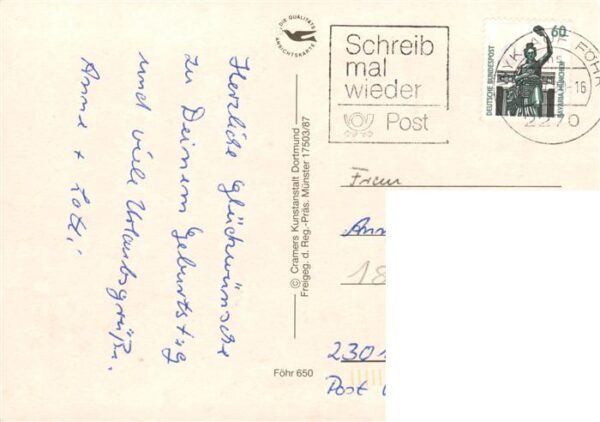 Herzliche Glückwünsche
zu Deinem Geburtstag
und viele Urlaubsgrüße.
Anne + Lotti
DIE QUALITÄTS
ANSICHTSKARTE
© Cramers Kunstanstalt Dortmund
Freigeg. d. Reg.-Präs. Münster 17503/87
Föhr 650
Schreib
mal
wieder
Post
60
DEUTSCHE BUNDESPOST
BAVARIA MÜNCHEN
WYK AUF FÖHR
-16
2270
Frau
Ann
18
2301
Post